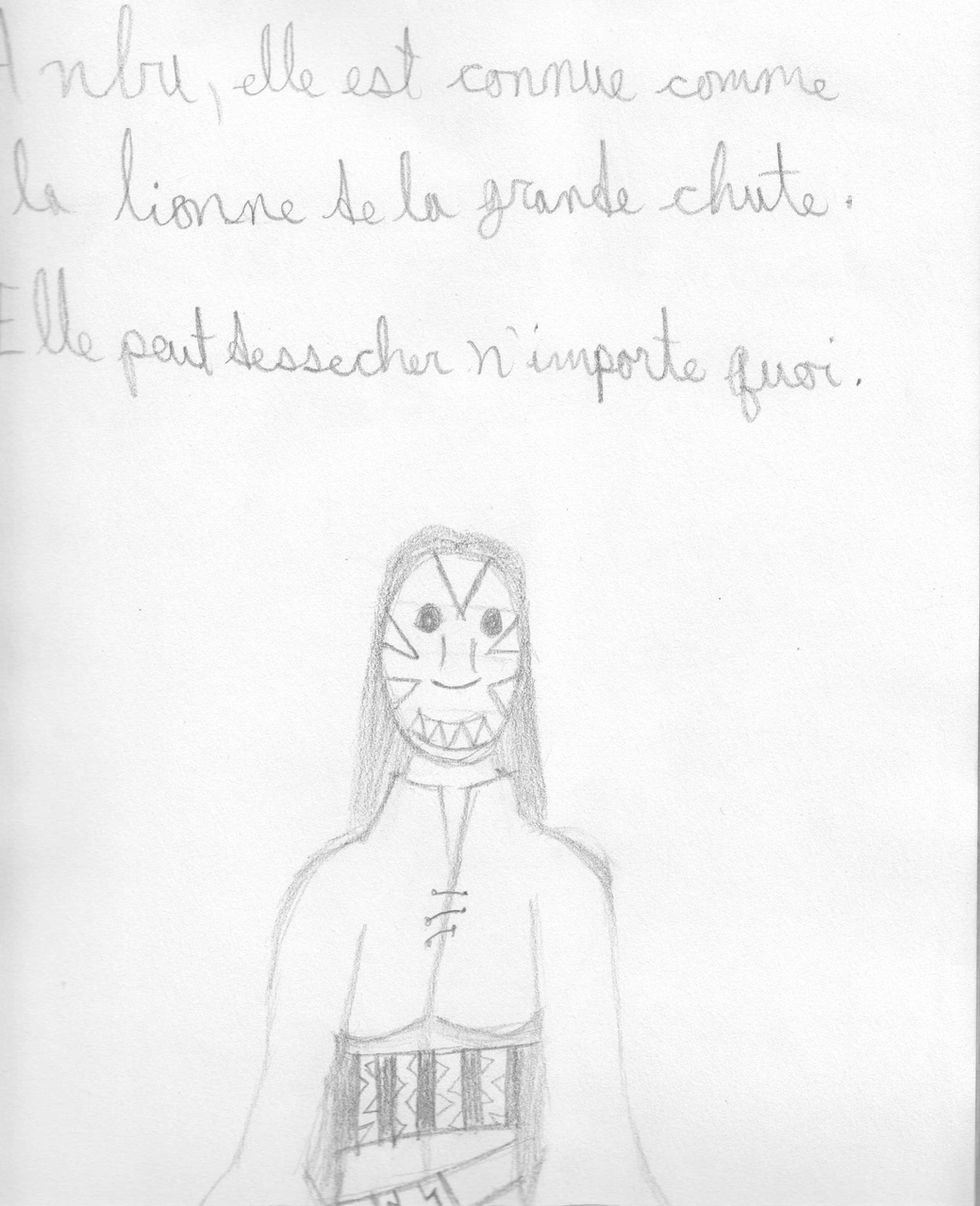 Anbu, elle est connue comme
la lionne de la grande chute.
Elle peut dessecher n'importe quoi.